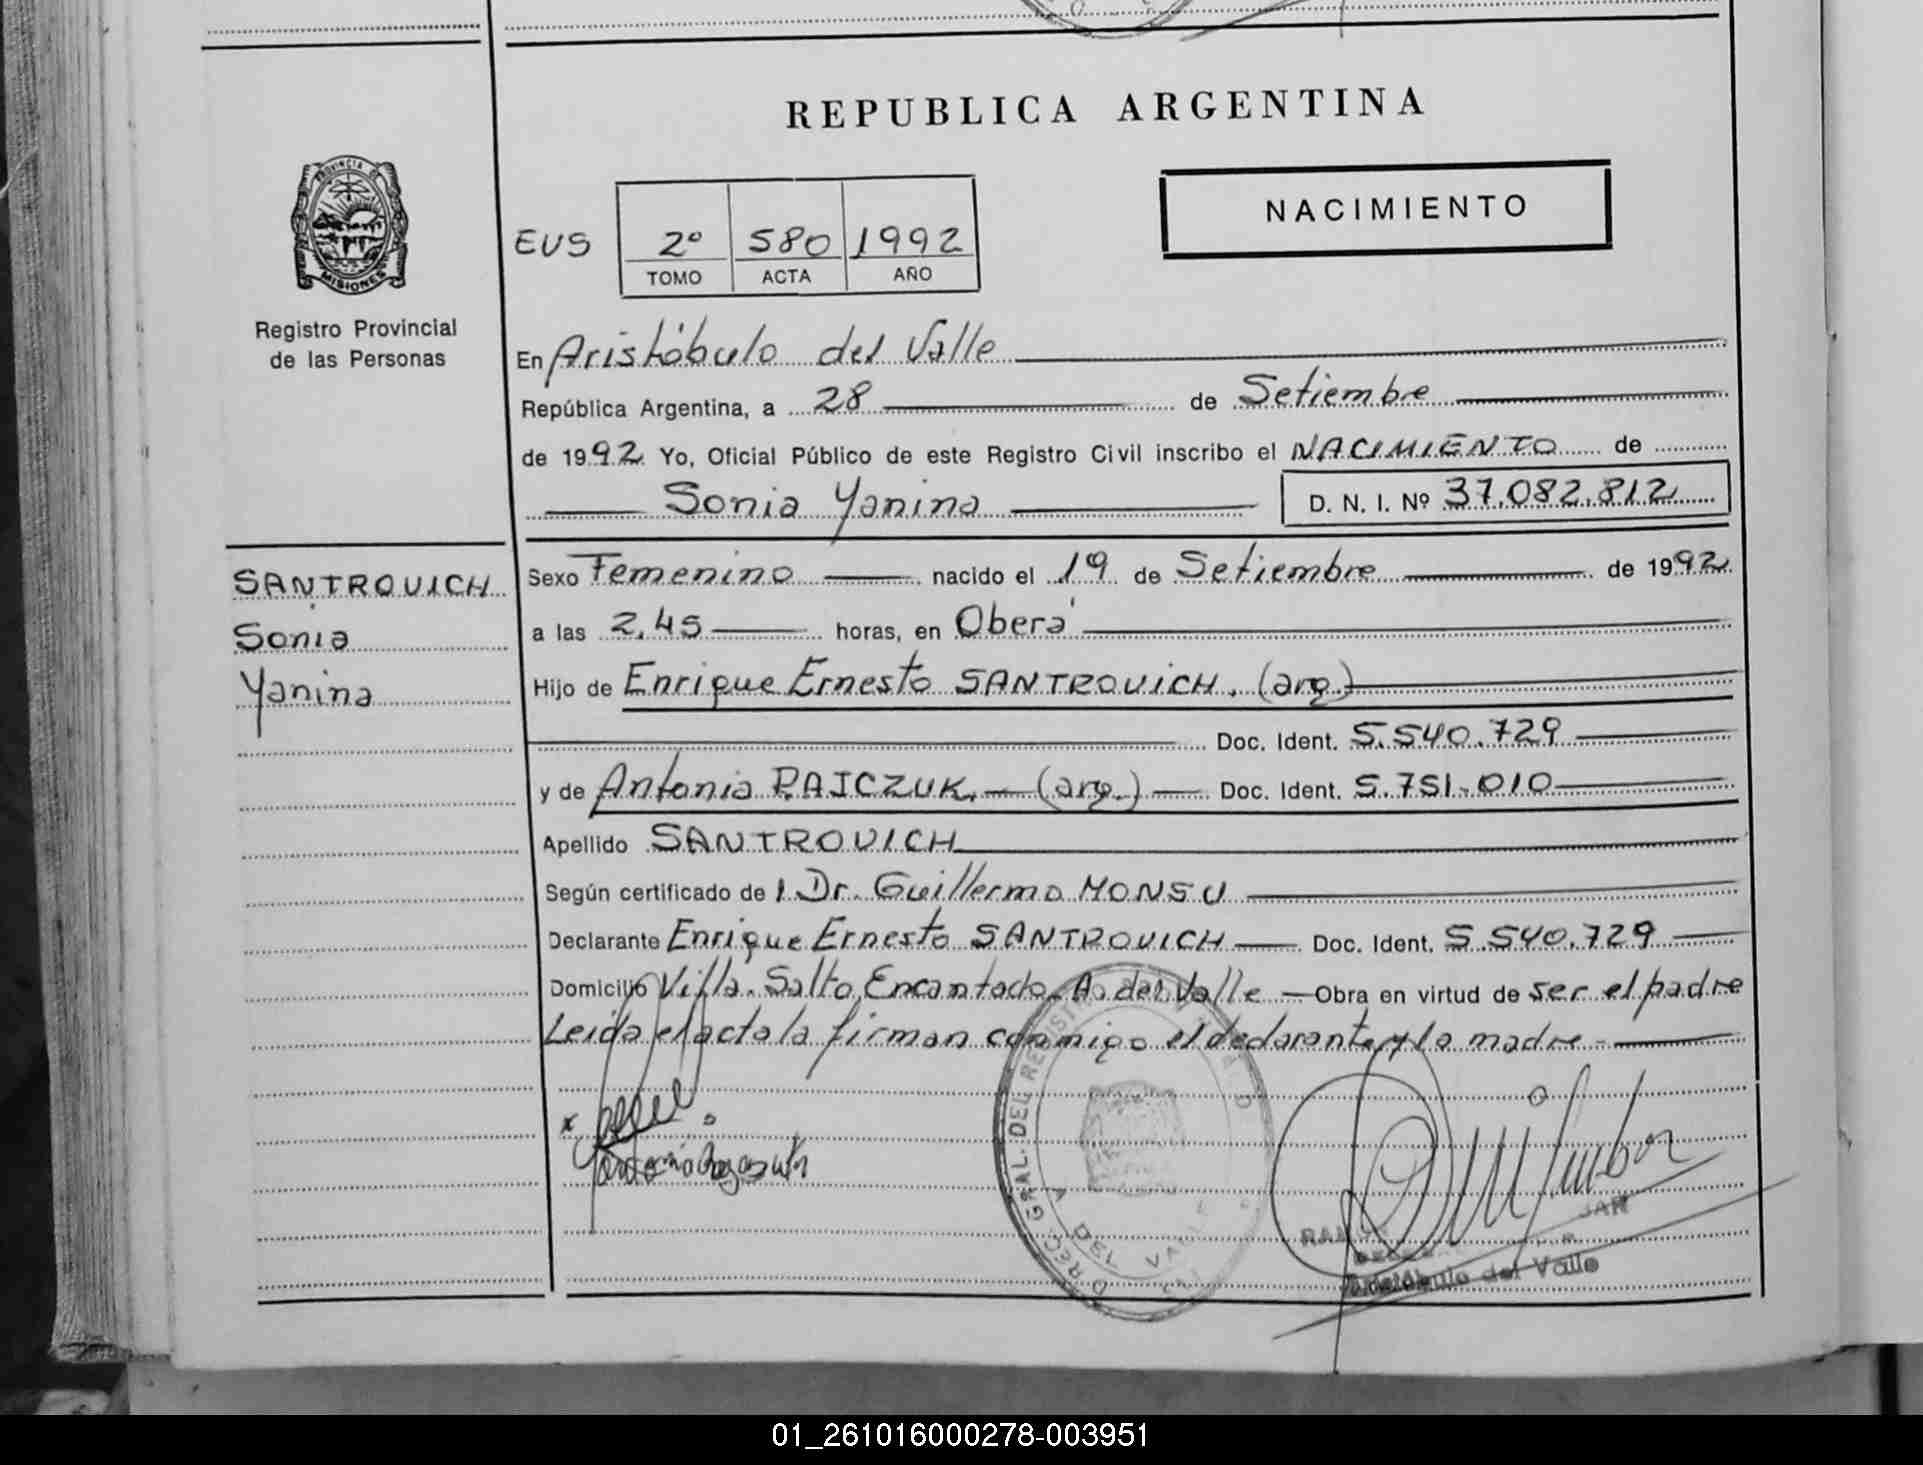 REPUBLICA ARGENTINA
PROVINCIA DE
MISIONES
Registro Provincial
de las Personas
NACIMIENTO
EUS 2º 580 1992
TOMO ACTA AÑO
En Aristóbulo del Valle
República Argentina, a 28 de Setiembre
de 1992 Yo, Oficial Público de este Registro Civil inscribo el NACIMIENTO de
Sonia Yanina D. N. I. Nº 37.082.812
SANTROVICH
Sonia
Yanina
Sexo Femenino nacido el 19 de Setiembre de 1992
a las 2,45 horas, en Oberá
Hijo de Enrique Ernesto SANTROVICH. (arg.)
Doc. Ident. 5.540.729
y de Antonia RAJCZUK. (arg.) Doc. Ident. 5.751.010
Apellido SANTROVICH
Según certificado del Dr. Guillermo MONSU
Declarante Enrique Ernesto SANTROVICH Doc. Ident. 5.540.729
Domicilio Villa Salto Encantado A. del Valle Obra en virtud de ser el padre
Leída el acta la firman conmigo el declarante y la madre
GRAL. DEL REGISTRO
Aristóbulo del Valle
01_261016000278-003951